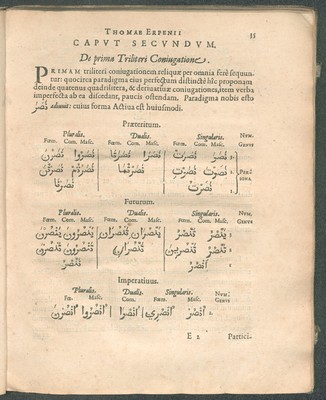 THOMAE ERPENII 53
CAPVT SECVNDVM.
De prima Triliteri Coniugatione.
PRIMAM triliteri coniugationem reliquæ per omnia ferè sequun-
tur: quocirca paradigma eius perfectum distinctè hîc proponam
deinde quatenus quadrilitera, & deriuatiuæ coniugationes, item verba
imperfecta ab ea discedant, paucis ostendam. Paradigma nobis esto
نَصَرَ adiuuit: cuius forma Actiua est huiusmodi.
Præteritum.
Pluralis. Dualis. Singularis. NVM.
Fœm. Com. Masc. Fœm. Com. Masc. Fœm. Com. Masc. GENVS
نَصَرْنَ نَصَرُوا نَصَرَتَا نَصَرَا نَصَرَتْ نَصَرَ
نَصَرْتُنَّ نَصَرْتُمْ نَصَرْتُمَا نَصَرْتِ نَصَرْتَ 2. PER-
SONA
نَصَرْنَا نَصَرْتُ
Futurum.
Pluralis. Dualis. Singularis. NVM.
Fœm. Com. Masc. Fœm. Com. Masc. Fœm. Com. Masc. GENVS
يَنْصُرْنَ يَنْصُرُونَ تَنْصُرَانِ يَنْصُرَانِ تَنْصُرُ يَنْصُرُ
تَنْصُرْنَ تَنْصُرُونَ تَنْصُرَانِ تَنْصُرِينَ تَنْصُرُ 2.
نَنْصُرُ أَنْصُرُ
Imperatiuus.
Pluralis. Dualis. Singularis. NVM:
Fœ. Masc. Com. Fœm. Masc. GENVS
اُنْصُرْنَ اُنْصُرُوا اُنْصُرَا اُنْصُرِي اُنْصُرْ 2.
E 2 Partici-